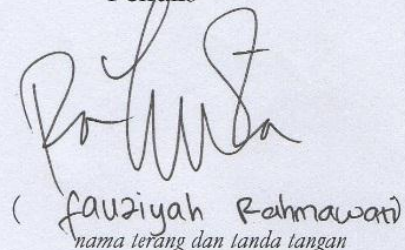 Penulis
( Fauziyah Rahmawati)
nama terang dan tanda tangan